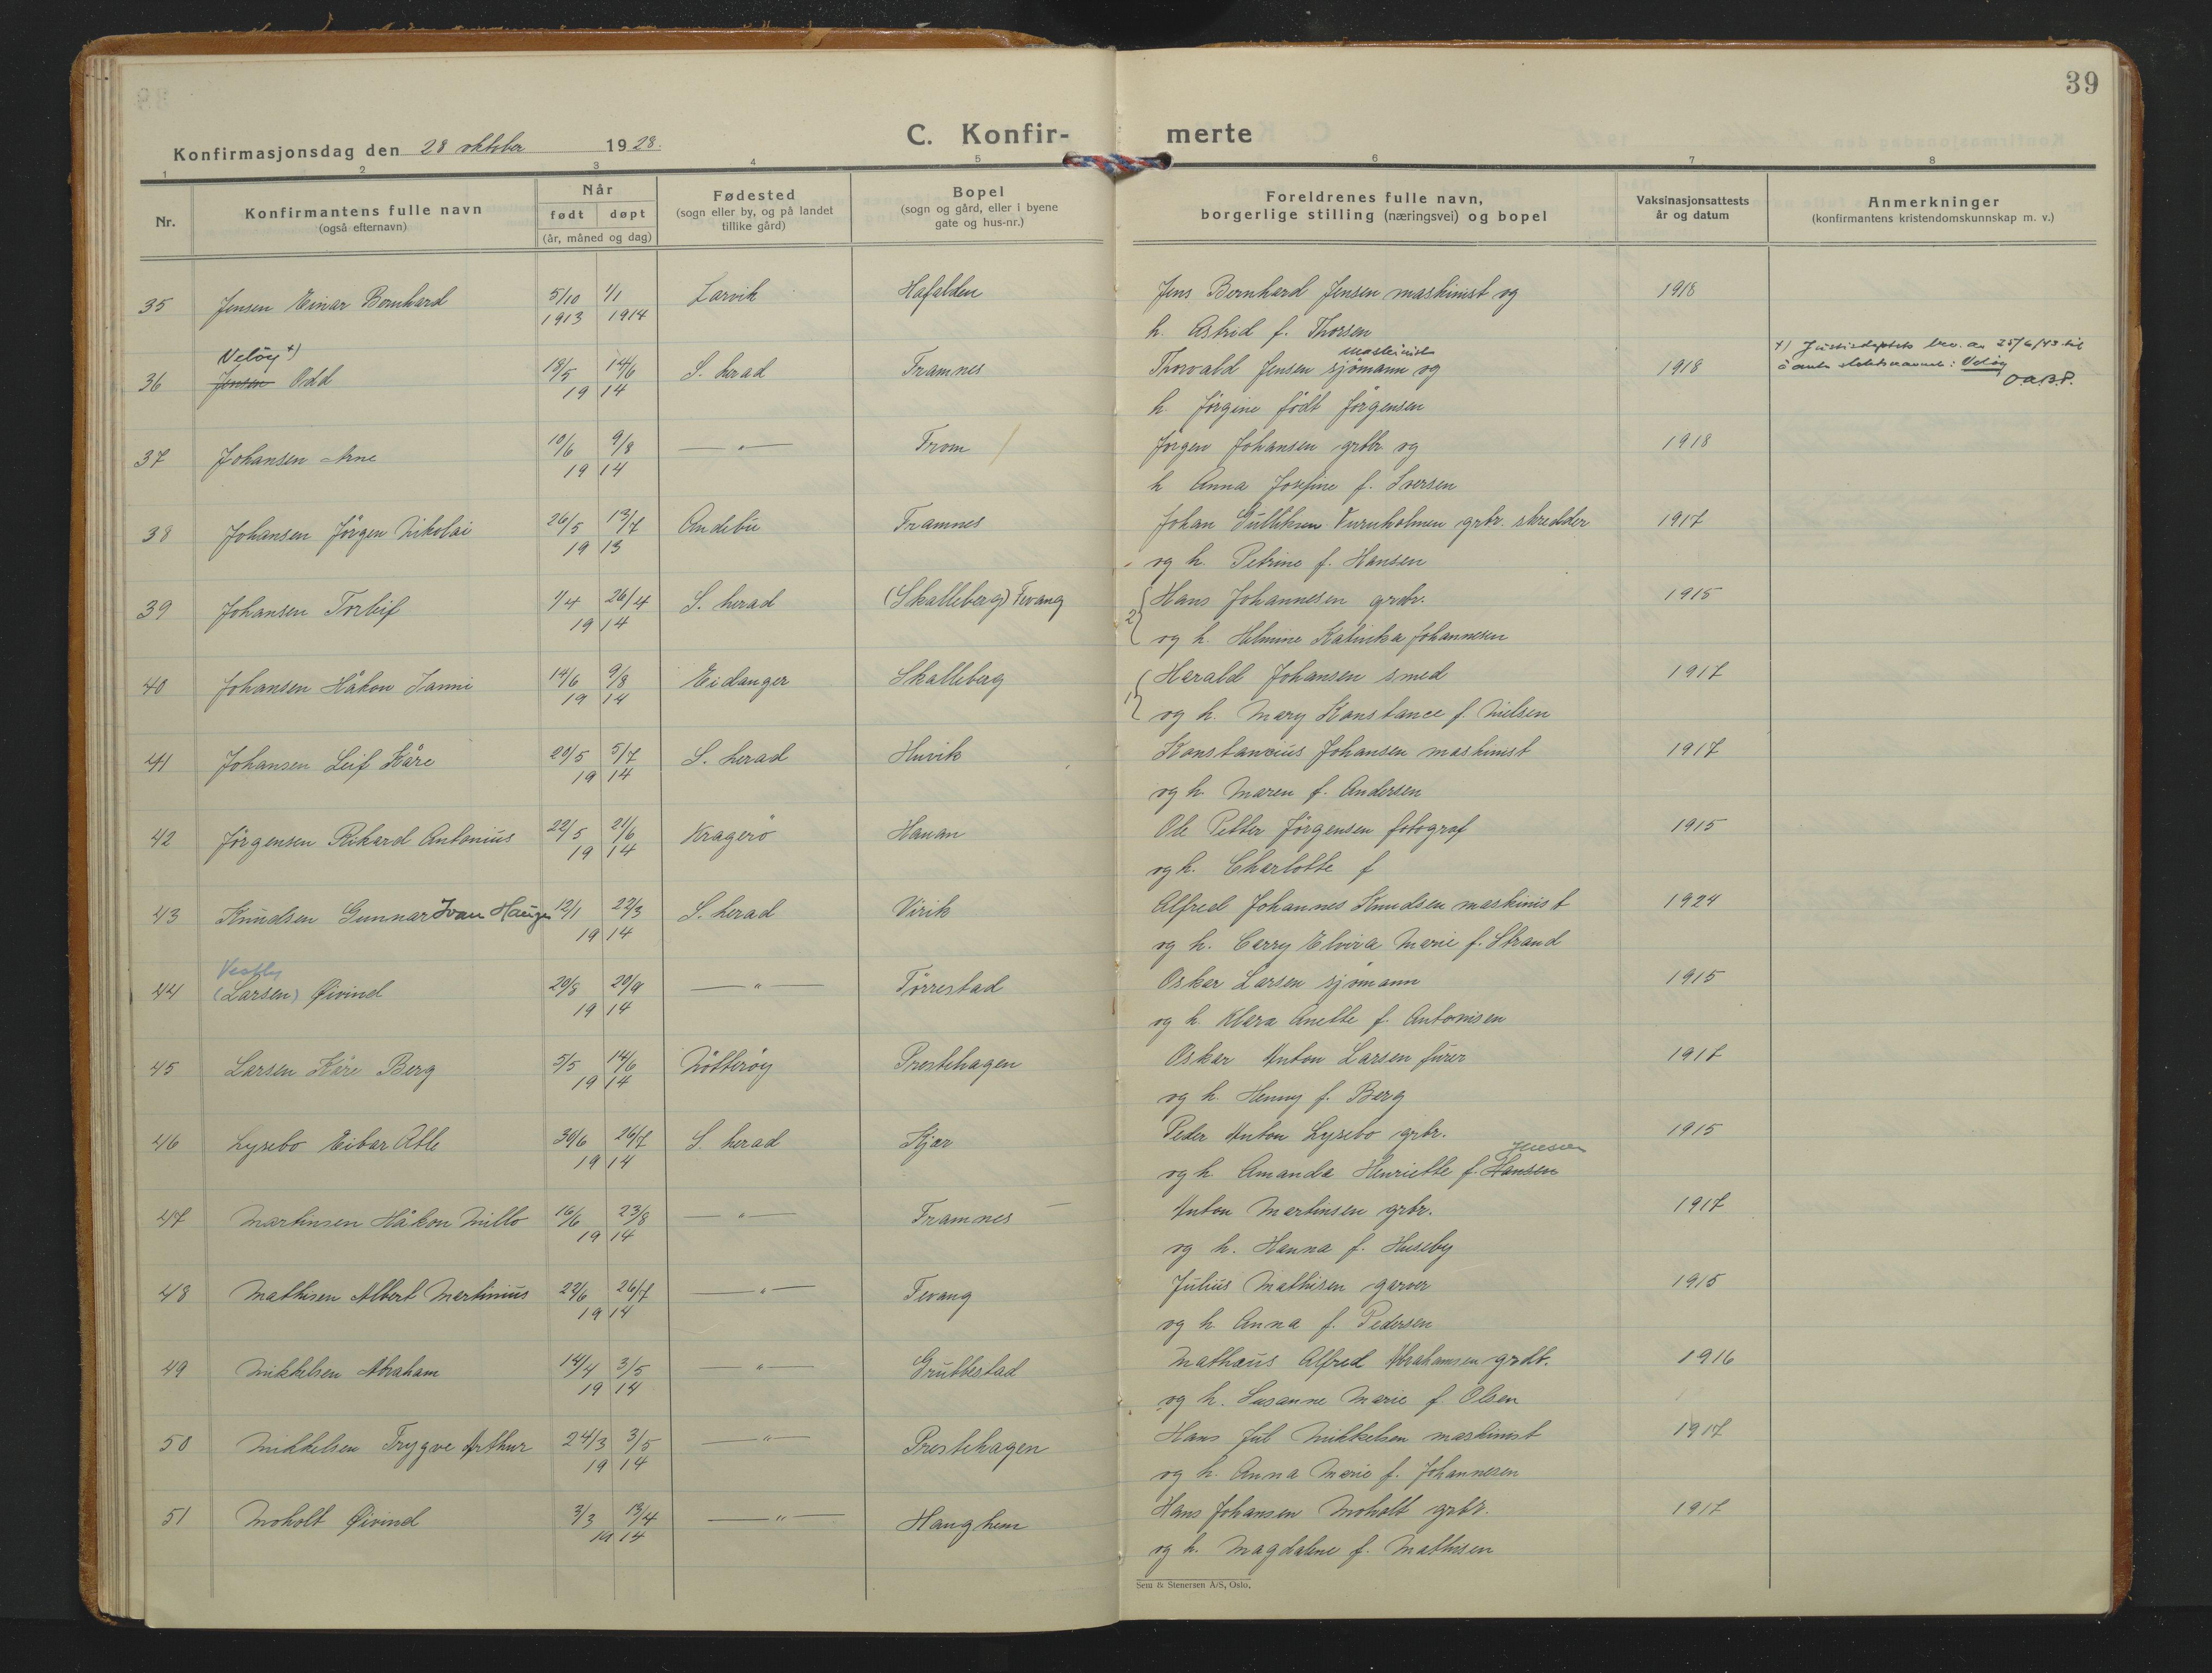 39
C. Konfir-merte
Konfirmasjonsdag den 28 oktober 1928.
1 2 3 4 5 6 7 8
Nr.
Konfirmantens fulle navn
(også efternavn)
Når
født døpt
(år, måned og dag)
Fødested
(sogn eller by, og på landet
tillike gård)
Bopel
(sogn og gård, eller i byene
gate og hus-nr.)
Foreldrenes fulle navn,
borgerlige stilling (næringsvei) og bopel
Vaksinasjonsattests
år og datum
Anmerkninger
(konfirmantens kristendomskunnskap m. v.)
35 Jensen Einar Bernhard 5/10 1913 1/1 1914 Larvik Hafalden Jens Bernhard Jensen maskinist og 1918
h. Astrid f. Thorsen
Veløy +)
36 Jensen Odd 18/5 14/6 19 14 S. herad Framnes Thorvald Jensen sjömann maskinist og 1918
+) Justisdeptets bev. av 25/6/43 til
å anta slektsnavnet: Veløy
O.a.B.P.
h. Jörgine född Jörgensen
37 Johansen Arne 10/6 9/8 19 14 — " — From Jörgen Johansen grbr. og 1918
h Anna Josefine f. Iversen
38 Johansen Jörgen Nikolai 26/5 13/7 19 13 Andebu Framnes Johan Gulliksen Furuholmen grbr. skredder 1917
og h. Petrine f. Hansen
39 Johansen Torleif 1/4 26/4 19 14 S. herad (Skalleberg) Fevang 2 Hans Johannesen grbr. 1915
og h. Helmine Katinka Johannesen
40 Johansen Håkon Janni 14/6 9/8 19 14 Eidanger Skalleberg 1 Harald Johansen smed 1917
og h. Mary Konstance f. Nielsen
41 Johansen Leif Kåre 20/5 5/7 19 14 S. herad Huvik Konstancius Johansen maskinist 1917
og h. Maren f. Andersen
42 Jörgensen Rikard Antonius 22/5 21/6 19 14 Kragerö Hanan Ole Petter Jörgensen fotograf 1915
og h. Charlotte f
43 Knudsen Gunnar Ivan Haugen 12/1 22/3 19 14 S. herad Virik Alfred Johannes Knudsen maskinist 1924
og h. Carry Elvira Marie f. Strand
Vestby
44 (Larsen) Øivind 20/8 20/9 19 14 — " — Törrestad Oskar Larsen sjömann 1915
og h. Klara Anette f. Antonisen
45 Larsen Kåre Berg 5/5 14/6 19 14 Nötteröy Prestehagen Oskar Anton Larsen furer 1917
og h. Henny f. Berg
46 Lysebo Eibar Atle 30/6 26/7 19 14 S. herad Kjær Peder Anton Lysebo grbr. 1915
og h. Amanda Henriette f. Hansen
47 Martinsen Håkon Millo 16/6 23/8 19 14 — " — Framnes Anton Martinsen grbr. 1917
og h. Hanna f. Huseby
48 Mathisen Albert Martinius 22/6 26/7 19 14 — " — Fevang Julius Mathisen garver 1915
og h. Anna f. Pedersen
49 Mikkelsen Abraham 14/4 3/5 19 14 — " — Grubbestad Mathæus Alfred Abrahamsen grdb. 1916
og h. Susanne Marie f. Olsen
50 Mikkelsen Trygve Arthur 24/3 3/5 19 14 — " — Prestehagen Hans Jul Mikkelsen maskinist 1917
og h. Anna Marie f. Johannesen
51 Moholt Øivind 3/3 13/4 19 14 — " — Hanghem Hans Johansen Moholt grbr. 1917
og h. Magdalene f. Mathisen
Sem & Stenersen A/S, Oslo.